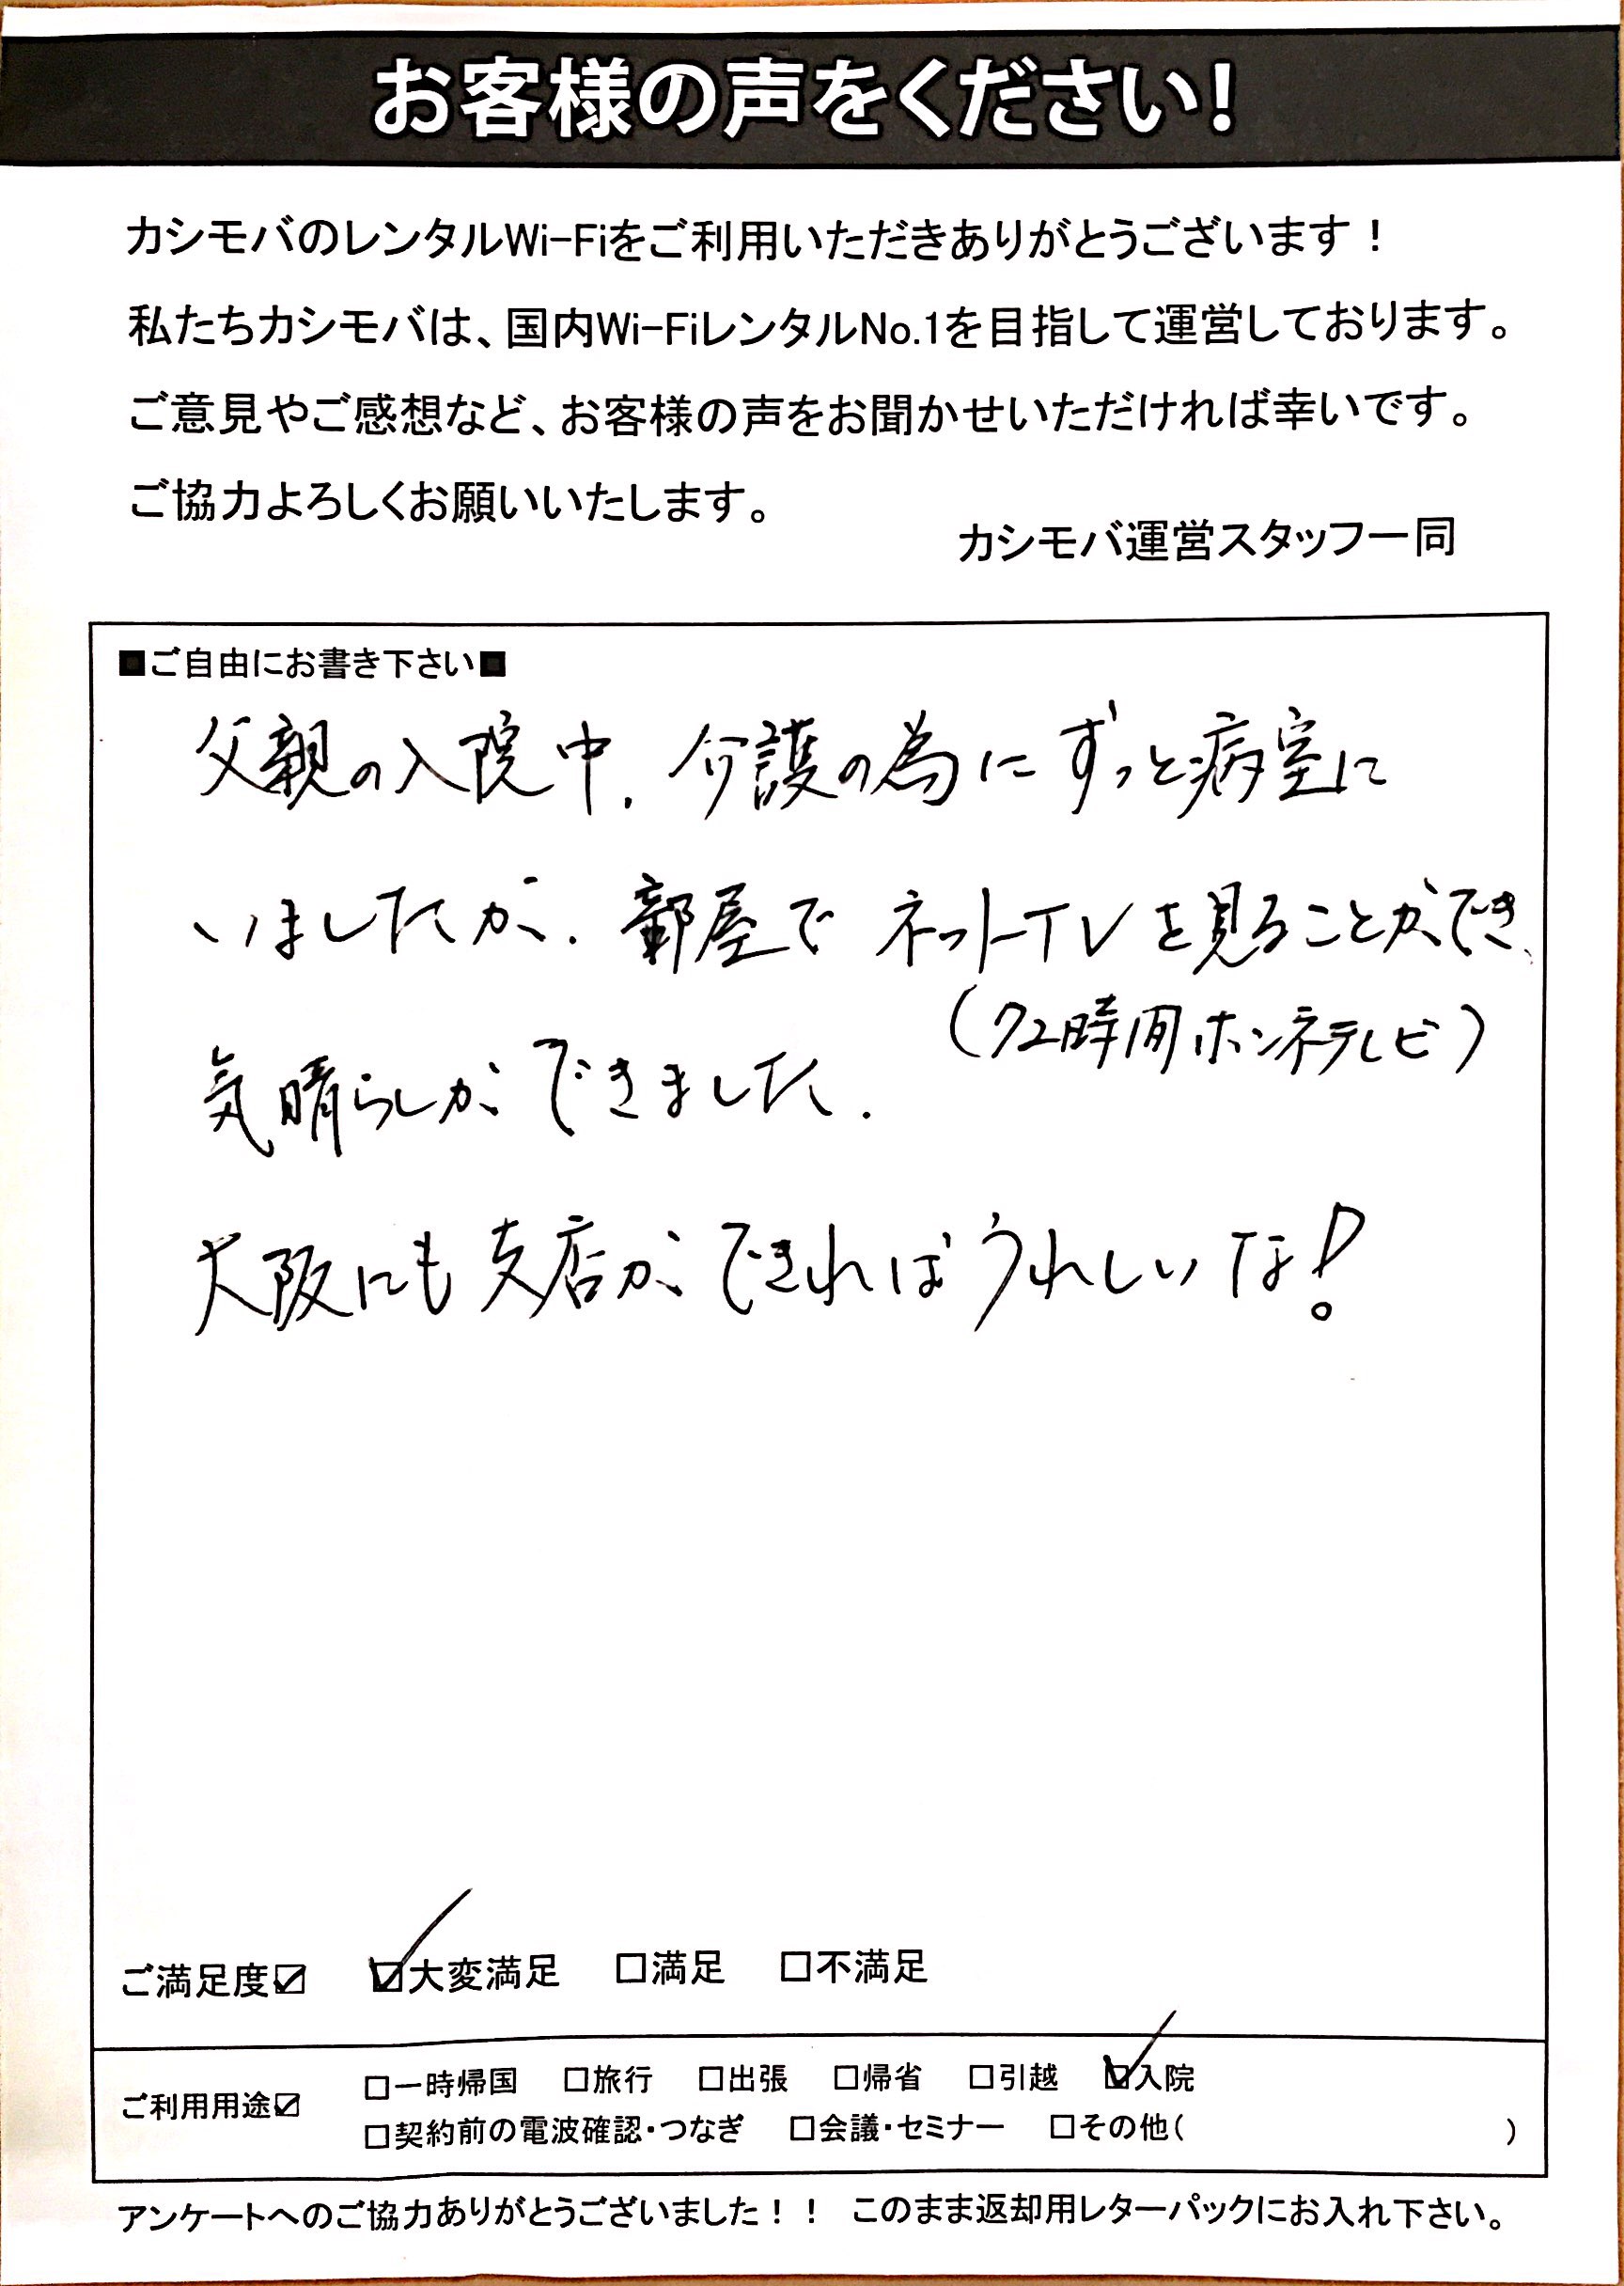 お客様の声をください!
カシモバのレンタルWi-Fiをご利用いただきありがとうございます！
私たちカシモバは、国内Wi-FiレンタルNo.1を目指して運営しております。
ご意見やご感想など、お客様の声をお聞かせいただければ幸いです。
ご協力よろしくお願いいたします。
カシモバ運営スタッフ一同
■ご自由にお書き下さい■
父親の入院中、介護の為にずっと病室に
いましたが、部屋でネットTVを見ることができ、
(72時間ホンネテレビ)
気晴らしができました.
大阪にも支店ができればうれしいな!
ご満足度☑ ☑大変満足 □満足 □不満足
ご利用用途☑ □一時帰国 □旅行 □出張 □帰省 □引越 ☑入院
□契約前の電波確認・つなぎ □会議・セミナー □その他( )
アンケートへのご協力ありがとうございました！！ このまま返却用レターパックにお入れ下さい。